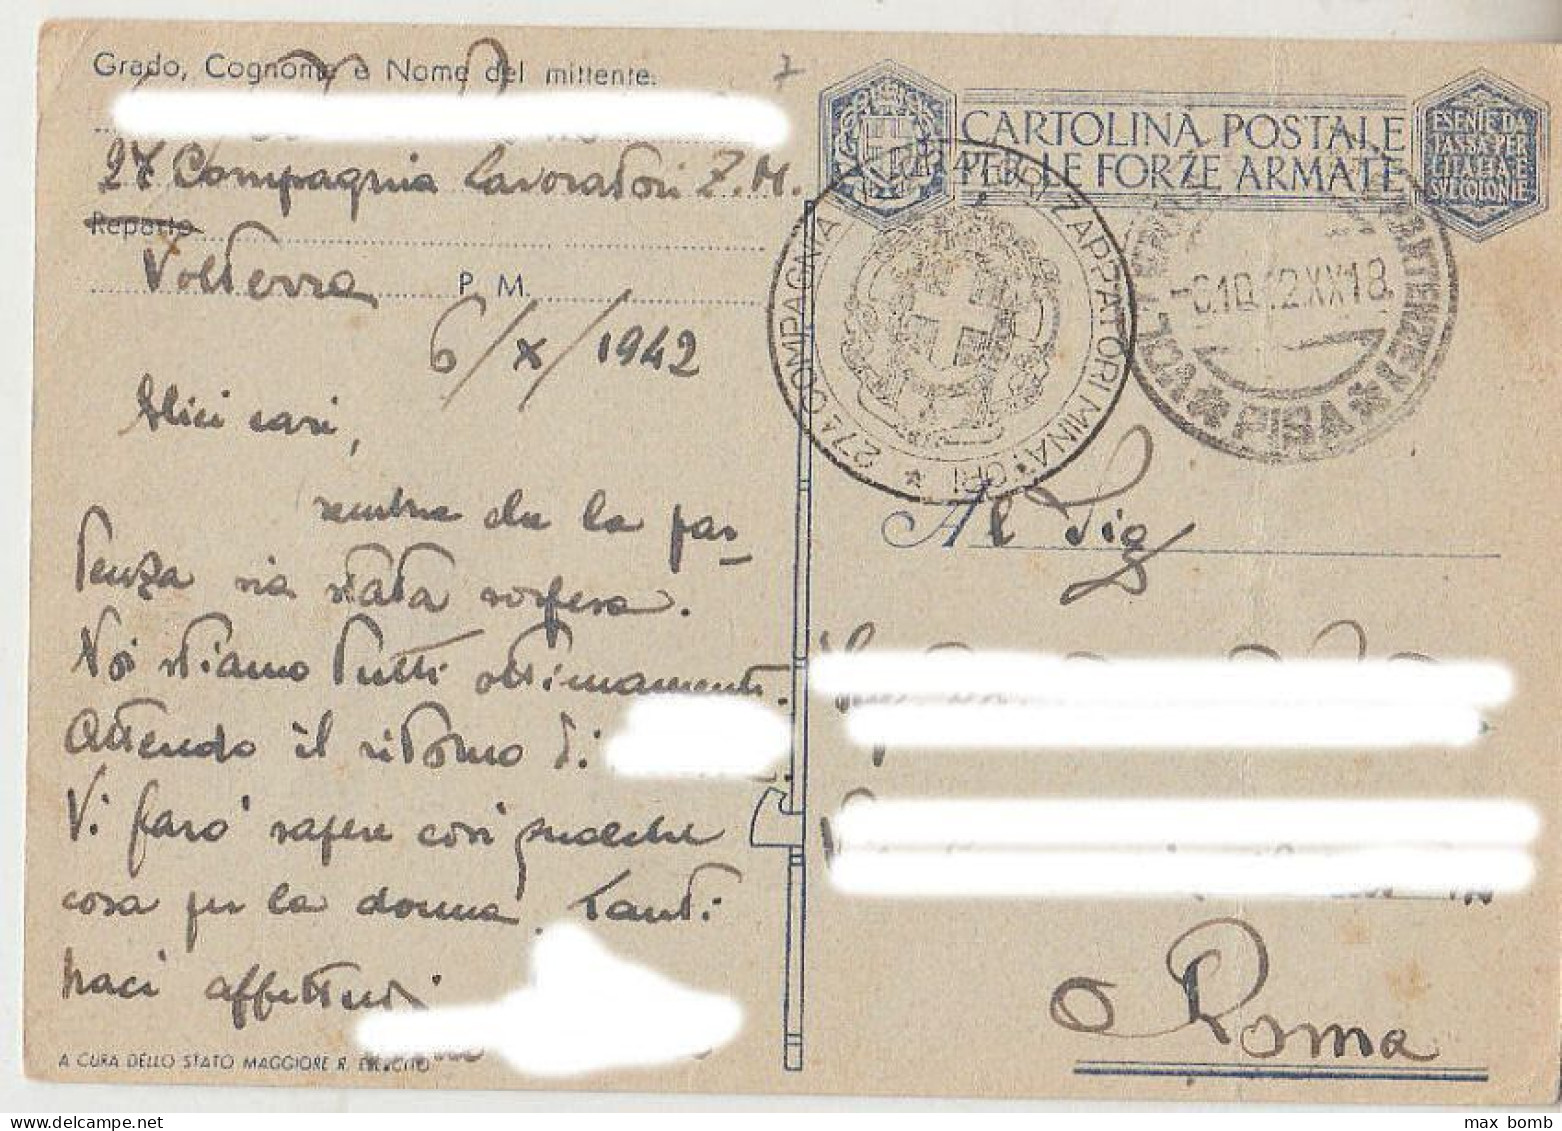 Grado, Cognome e Nome del mittente.
27 Compagnia Lavoratori Z.M.
Reparto
Volterra P. M.
6/X/1942
Miei cari,
sembra che la par-
tenza sia stata sospesa.
Noi stiamo tutti ottimamente.
Attendo il ritorno di
Vi farò sapere così qualche
cosa per la donna. Tanti
baci affettuosi
A CURA DELLO STATO MAGGIORE R. ESERCITO
CARTOLINA POSTALE
PER LE FORZE ARMATE
ESENTE DA
TASSA PER
L'ITALIA E
SUE COLONIE
274 COMPAGNIA ZAPPATORI MINATORI
-6.10.42.XX18
PISA
Al Sig
Roma
max bomb